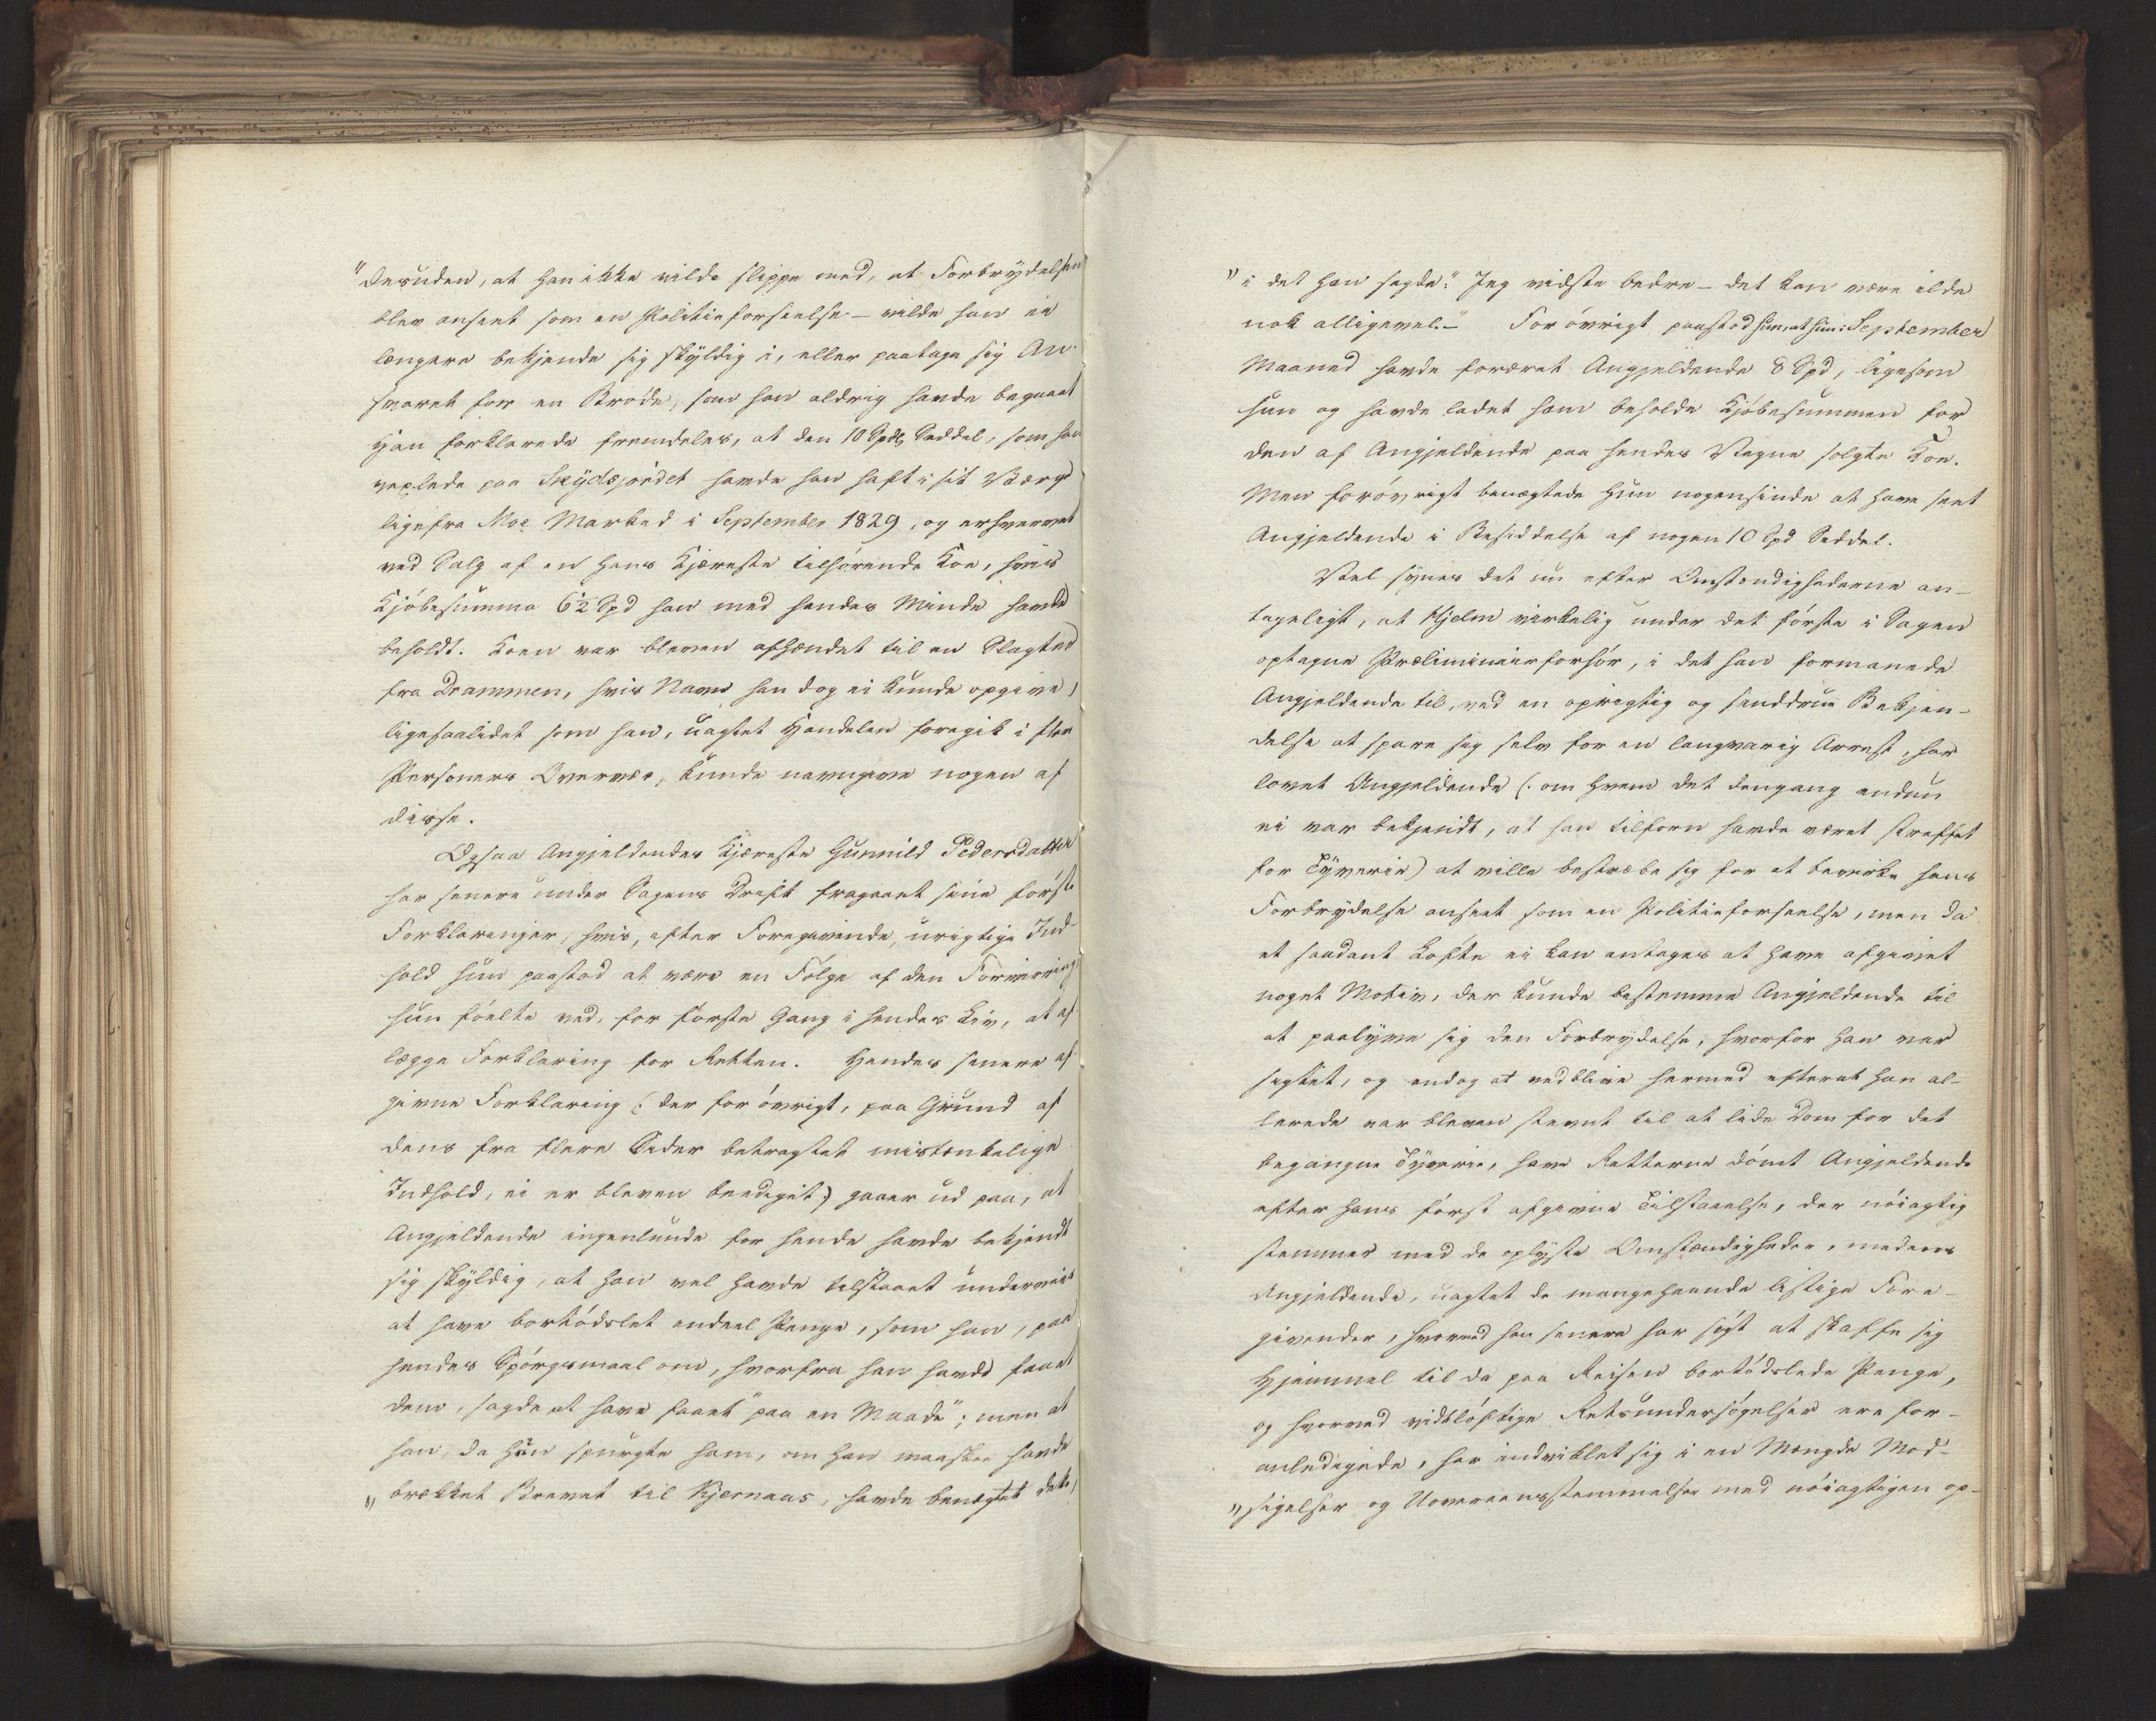 "desuden, at han ikke vilde slippe med, at Forbrydelsen
blev anseet som en Politieforseelse – vilde han ei
længere bekjende sig skyldig i, eller paatage sig An-
svaret for en Brøde, som han aldrig havde begaaet
Han forklarede fremdeles, at den 10 Spdlr Seddel, som han
vexlede paa Skydsjordet havde han haft i sit Værge
lige fra Moe Marked i September 1829, og erhvervet
ved Salg af en hans Kjæreste tilhørende Koe, hvis
Kjøbesumma 6½ Spd han med hendes Minde havde
beholdt. Koen var bleven afhændet til en Slagter
fra Drammen, hvis Navn han dog ei kunde opgive,
ligesaalidet som han, uagtet Handelen foregik i flere
Personers Overvær, kunde navngive nogen af
disse.
Ogsaa Angjeldendes Kjæreste Gunnild Pedersdatter
har senere under Sagens Drift fragaaet sine første
Forklaringer, hvis, efter Foregivende, urigtige Ind-
hold hun paastod at være en Følge af den Forvirring
hun følte ved, for første Gang i hendes Liv, at af-
lægge Forklaring for Retten. Hendes senere af-
givne Forklaring (: der for øvrigt, paa Grund af
dens fra flere Sider betragtet mistænkelige
Indhold, ei er bleven beediget:) gaaer ud paa, at
Angjeldende ingenlunde for hende havde bekjendt
sig skyldig, at han vel havde tilstaaet underveis
at have bortødslet endeel Penge, som han, paa
hendes Spørgsmaal om, hvorfra han havde faaet
dem, sagde at have faaet "paa en Maade"; men at
han, da hun spurgte ham, om han maaskee havde
" brækket Brevet til Kjernaas, havde benægtet dette,
" i det han sagde: "Jeg vidste bedre – det kan være ilde
nok alligevel." – For øvrigt paastod hun, at hun i September
Maaned havde foræret Angjeldende 8 Spd, ligesom
hun og havde ladet ham beholde Kjøbesummen for
den af Angjeldende paa hendes Vegne solgte Koe.
Men forøvrigt benægtede hun nogensinde at have seet
Angjeldende i Besiddelse af nogen 10 Spd Seddel.
Vel synes det nu efter Omstændighederne an-
tageligt, at Hjelm virkelig under det første i Sagen
optagne Præliminairforhør, i det han formanede
Angjeldende til, ved en oprigtig og sanddrue Bekjen-
delse at spare sig selv for en langvarig Arrest, har
lovet Angjeldende (: om hvem det dengang endnu
ei var bekjendt, at han tilforn havde været straffet
for Tyverie) at ville bestræbe sig for at bevirke hans
Forbrydelse anseet som en Politieforseelse, men da
et saadant Løfte ei kan antages at have afgivet
noget Motiv, der kunde bestemme Angjeldende til
at paalyve sig den Forbrydelse, hvorfor han var
sigtet, og endog at vedblive hermed efterat han al-
lerede var bleven stævnt til at lide Dom for det
begangne Tyverie, have Retterne dømt Angjeldende
efter hans først afgivne Tilstaaelse, der nøiagtig
stemmer med de oplyste Omstændigheder, medens
Angjeldende, uagtet de mangehaande listige Fore-
givender, hvorved han senere har søgt at skaffe sig
Hjemmel til de paa Reisen bortødslede Penge,
og hvorved vidtløftige Retsundersøgelser ere for-
anledigede, har indviklet sig i en Mængde Mod-
" sigelser og Uoverensstemmelser med nøiagtigen op-